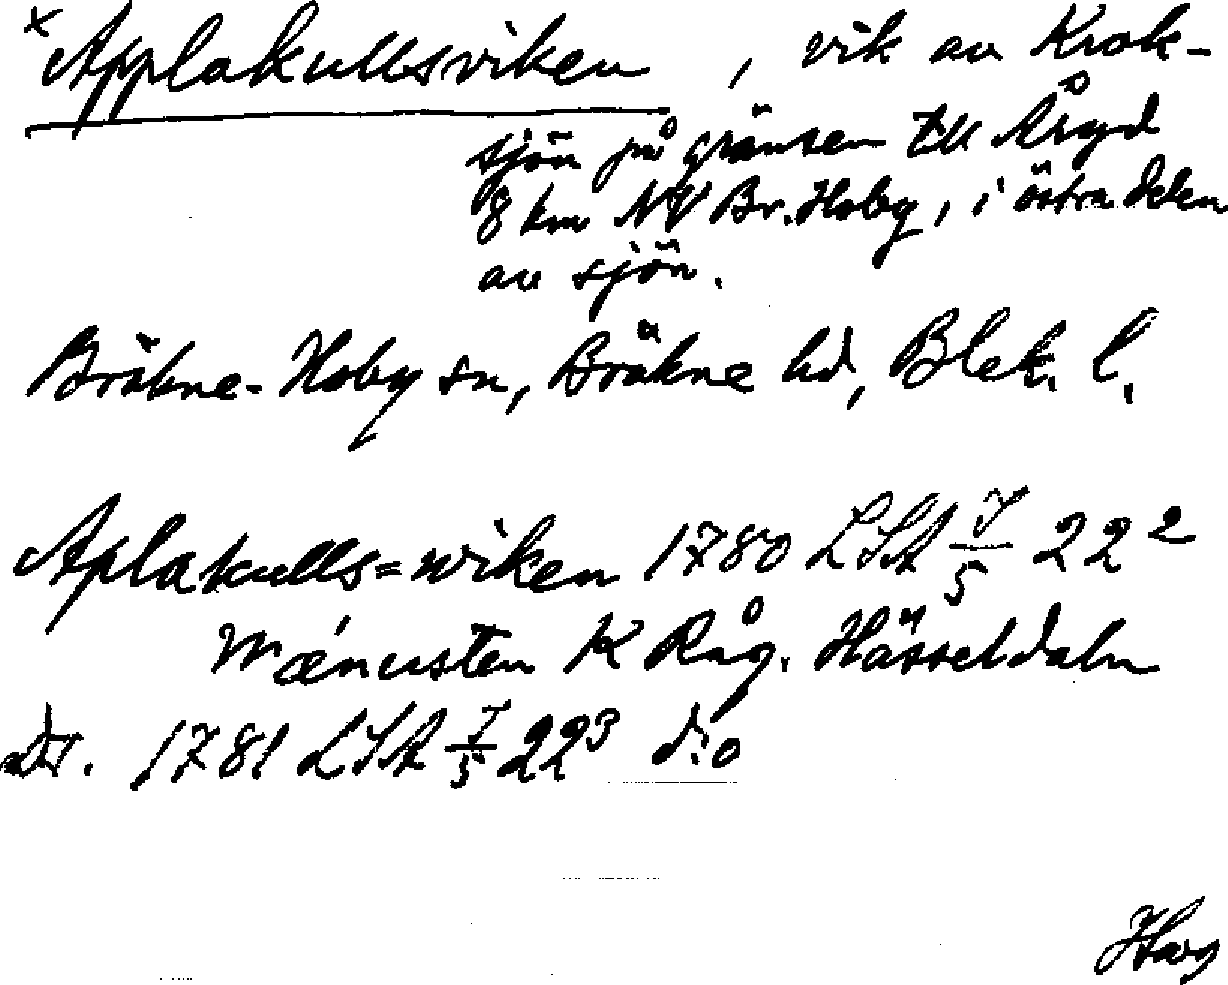 × Applakullsviken, vik av Krok-
sjön på gränsen till Åryd
8 km NV Br. Hoby, i östra delen
av sjön.
Bräkne-Hoby sn, Bräkne hd, Blek. l.
Aplakulls=wiken 1780 LSA J/5 22²
K Råg. Hässeldaln
Dt. 1781 LSA J/5 22³ d:o